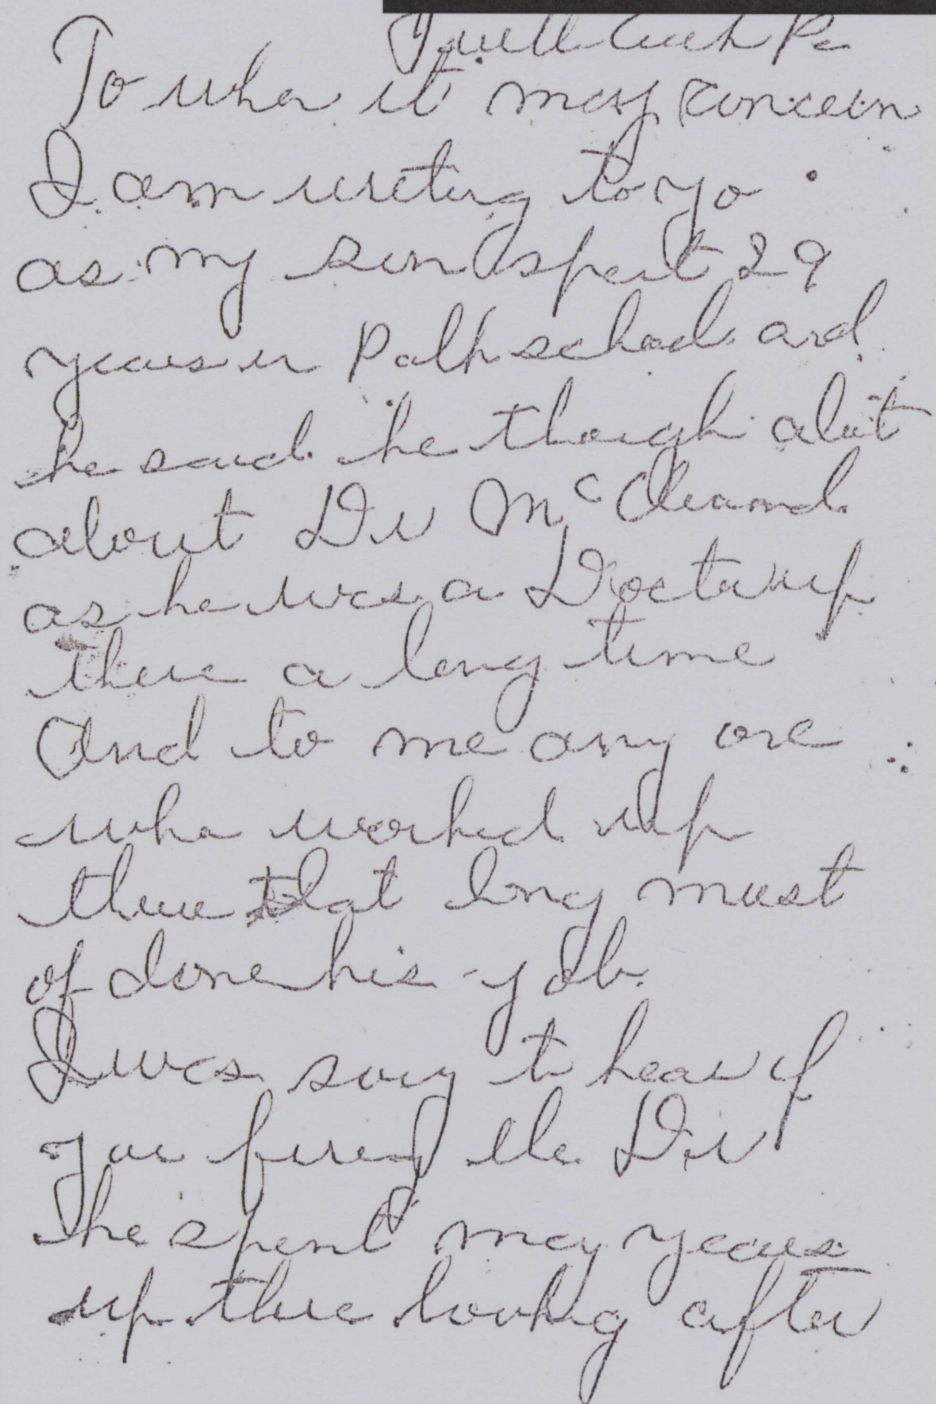 To whom it may concern
I am writing to yo
as my son spent 29
years in Polk school and
he said he though alot
about Dr McClelland
as he was a Doctor up
there a long time
And to me any one
who worked up
there that long must
of done his job.
I was sory to hear if
you fired the Dr
he spent may years
up there looking after